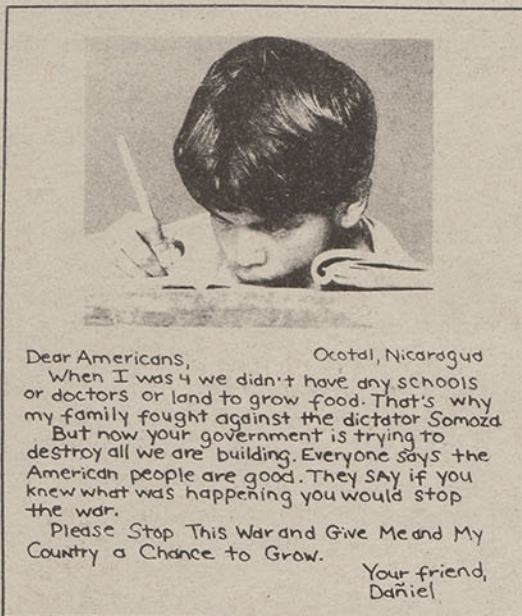 Dear Americans, Ocotal, Nicaragua
When I was 4 we didn't have any schools
or doctors or land to grow food. That's why
my family fought against the dictator Somoza
But now your government is trying to
destroy all we are building. Everyone says the
American people are good. They SAY if you
knew what was happening you would stop
the war.
Please Stop This War and Give Me and My
Country a Chance to Grow.
Your friend,
Dañiel